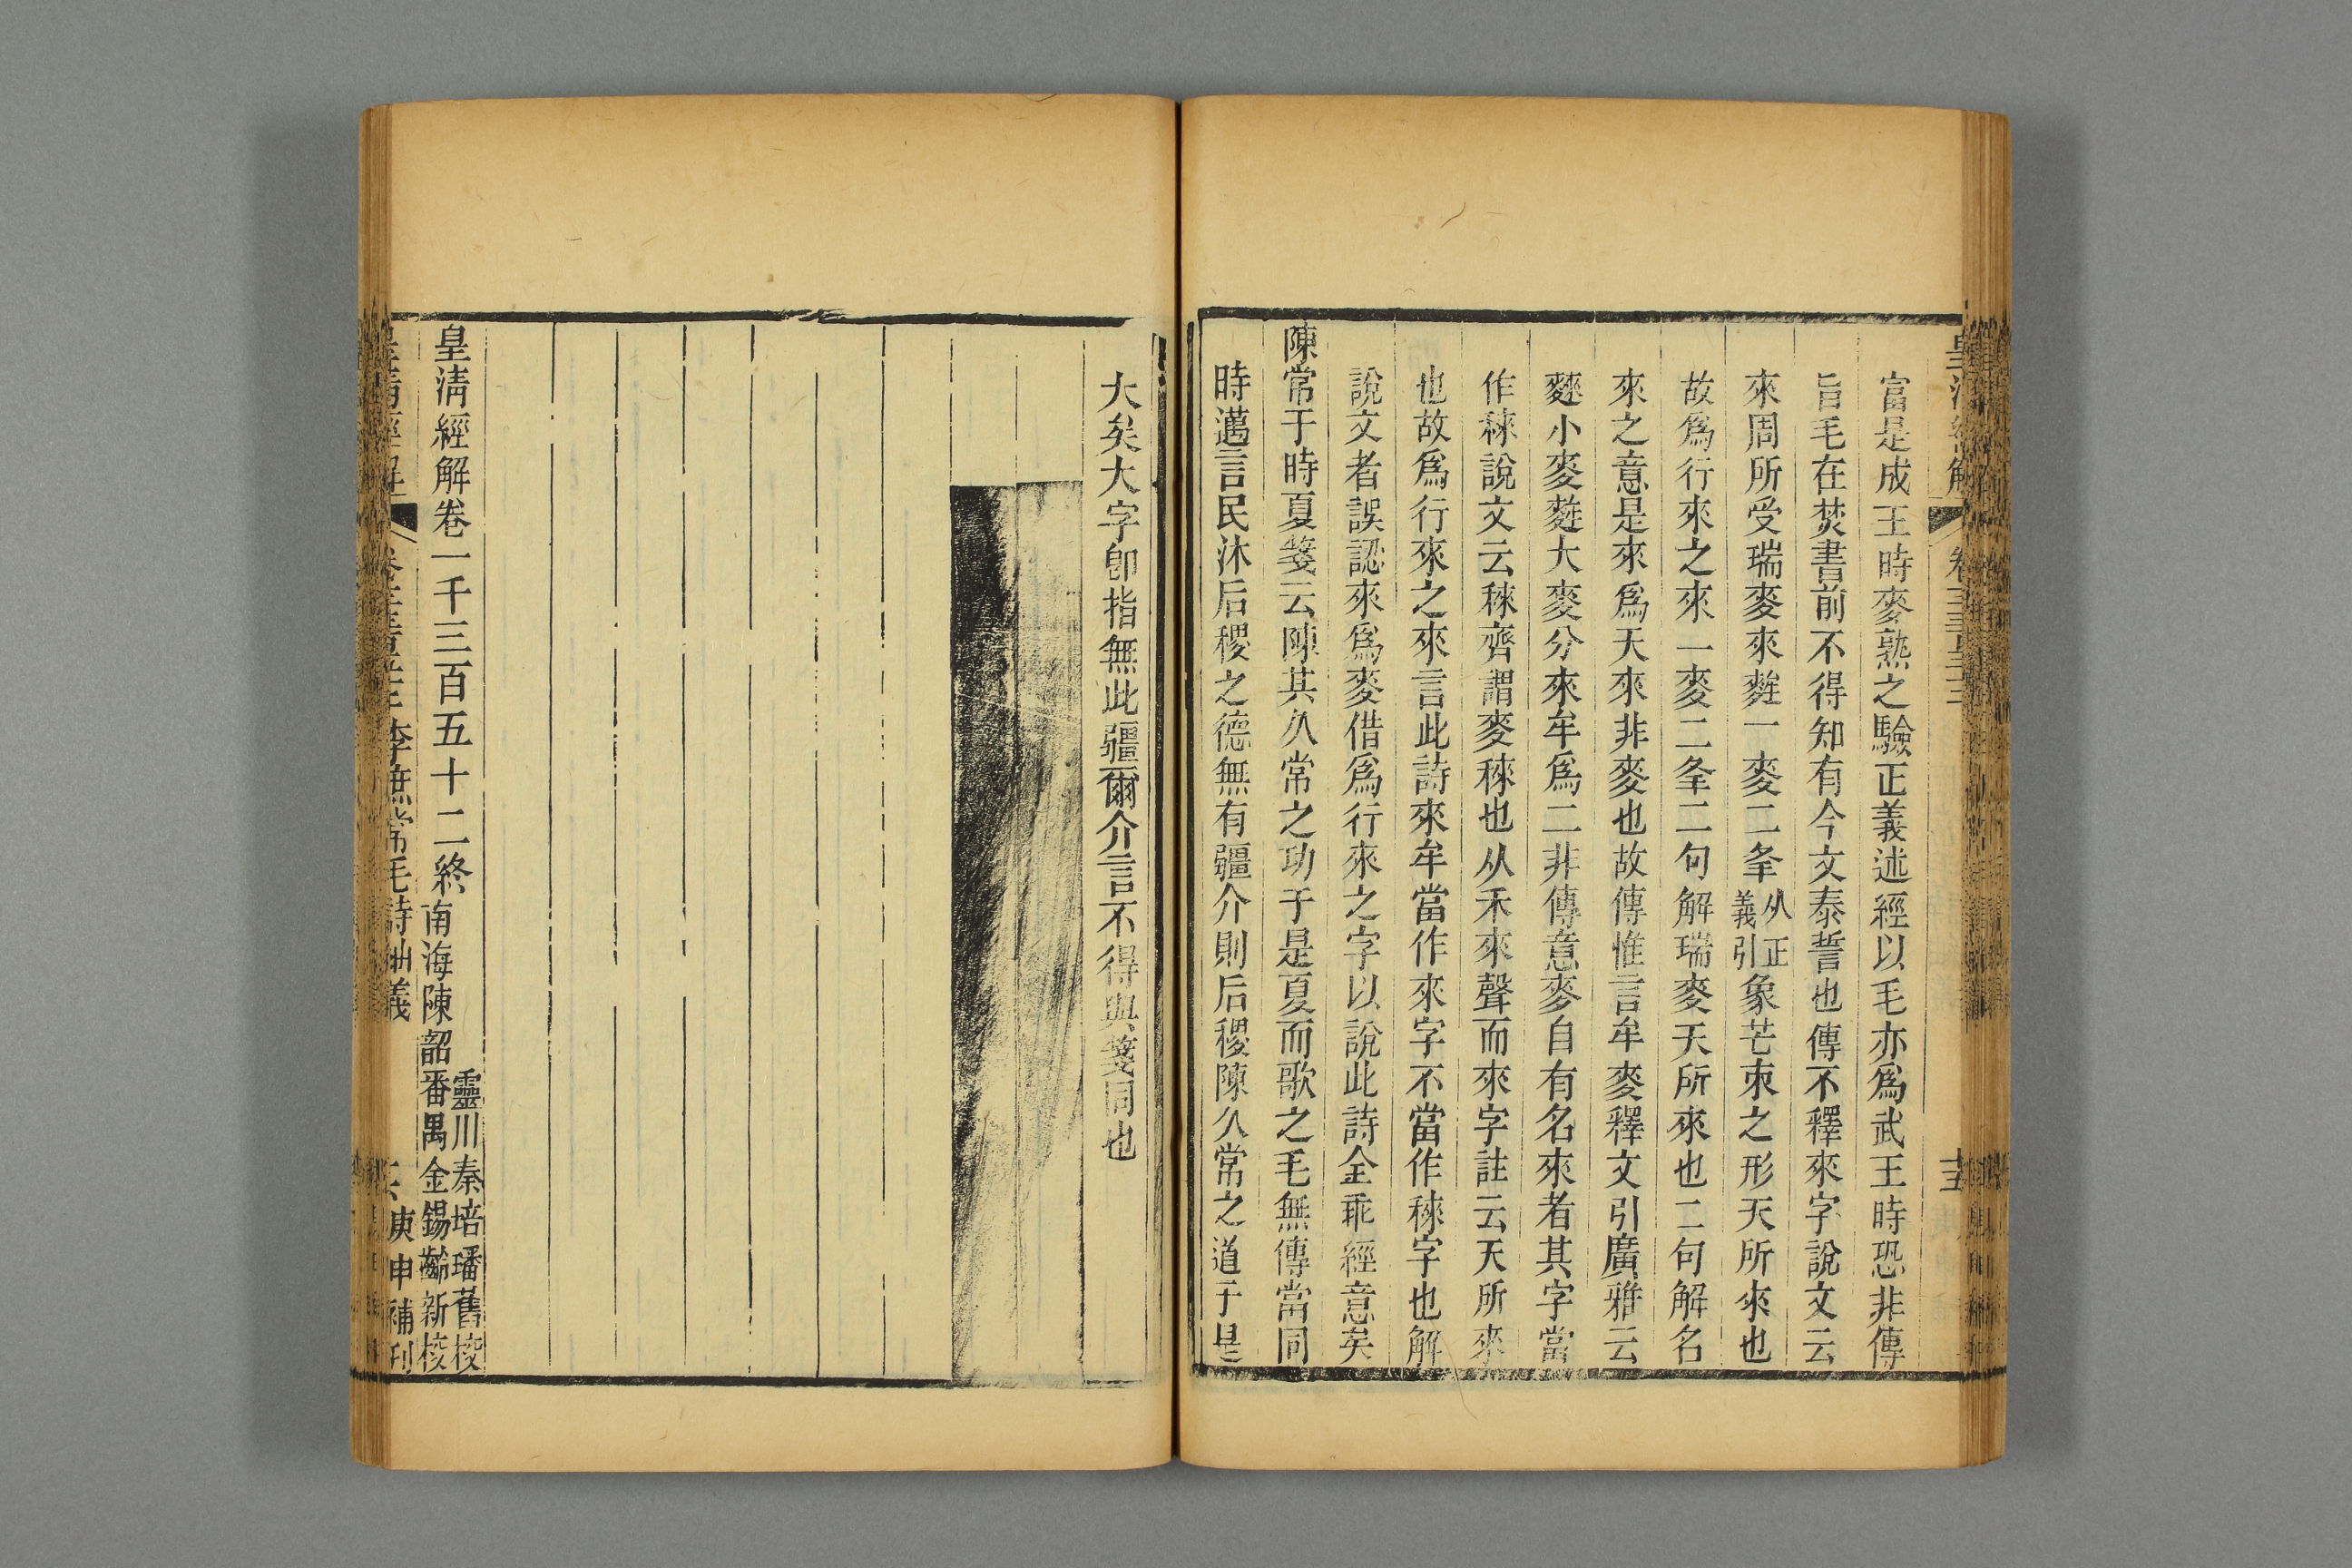 富是成王時麥熟之驗正義述經以毛亦爲武王時恐非傳
旨毛在焚書前不得知有今文泰誓也傳不釋來字說文云
來周所受瑞麥來麰一麥二夆從正義引象芒朿之形天所來也
故爲行來之來一麥二夆二句解瑞麥天所來也二句解名
來之意是來爲天來非麥也故傳惟言牟麥釋文引廣雅云
麳小麥麰大麥分來牟爲二非傳意麥自有名來者其字當
作秾說文云秾齊謂麥秾也从禾來聲而來字註云天所來
也故爲行來之來言此詩來牟當作來字不當作秾字也解
說文者誤認來爲麥借爲行來之字以說此詩全乖經意矣
陳常于時夏箋云陳其久常之功于是夏而歌之毛無傳當同
時邁言民沐后稷之德無有疆介則后稷陳久常之道于是
大矣大字卽指無此疆爾介言不得與箋同也
皇清經解卷一千三百五十二終
靈川秦培璠舊校
南海陳韶番禺金錫齡新校
李庶常毛詩紬義
庚申補刊